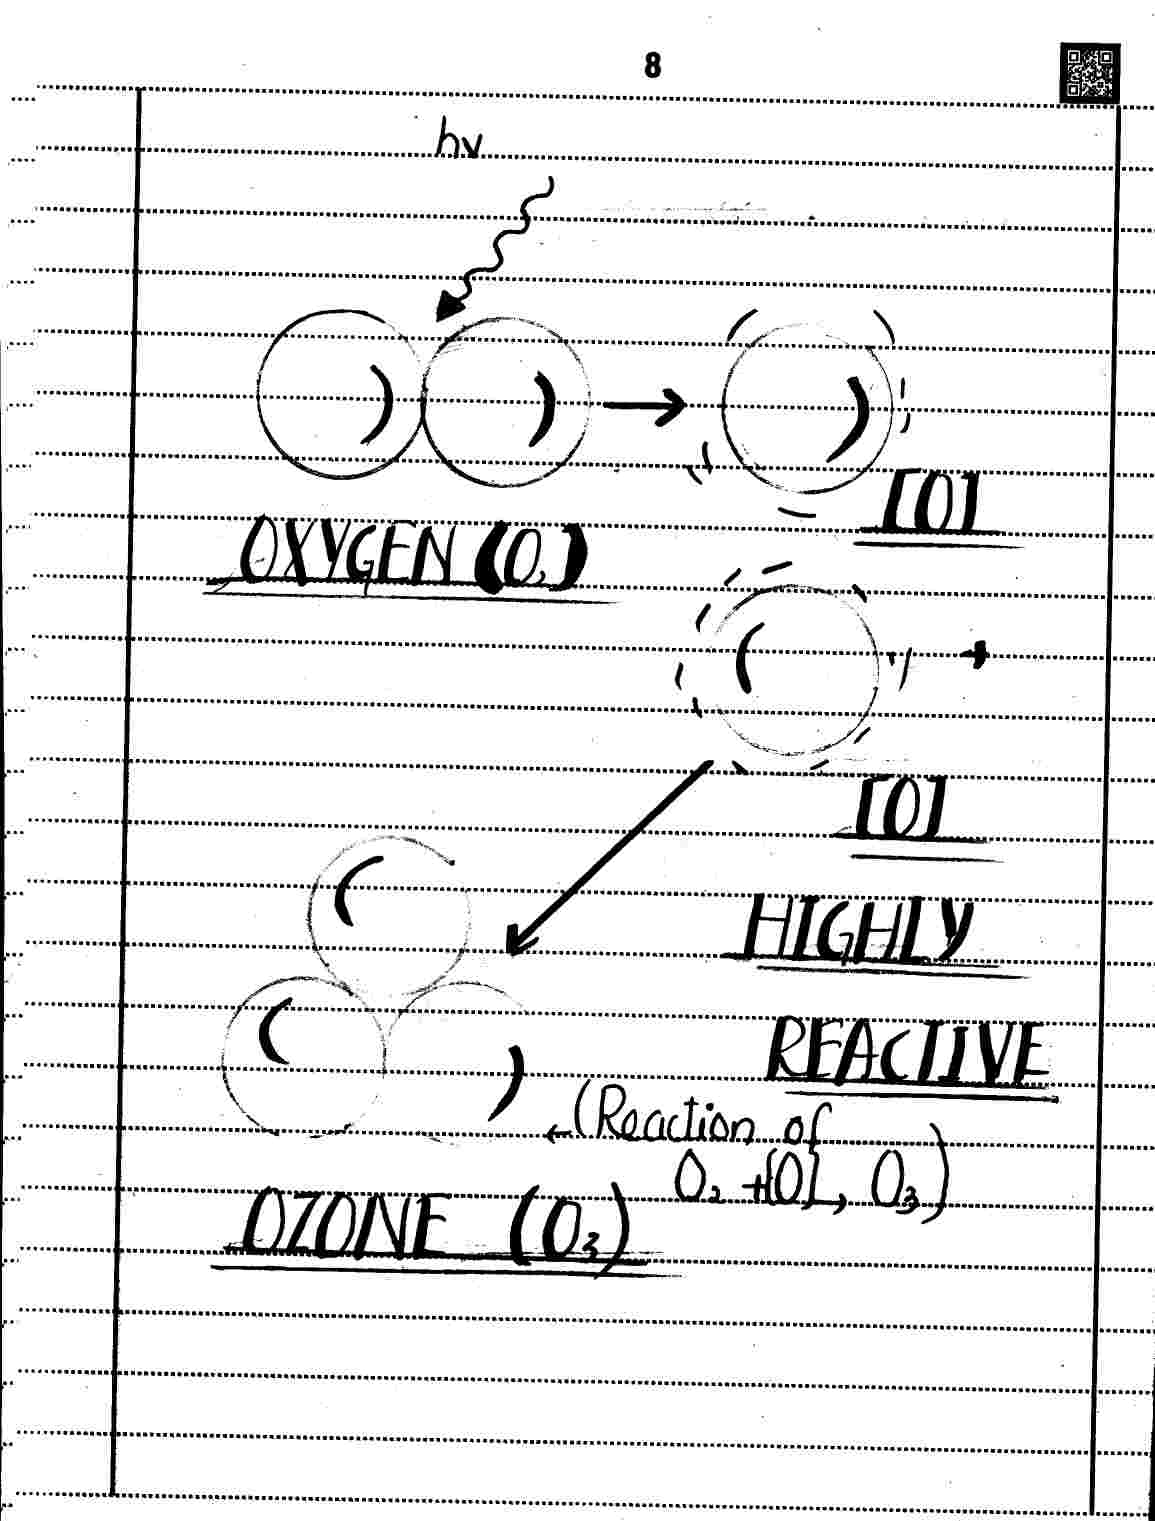 8
hν
[O]
OXYGEN (O₂)
[O]
HIGHLY
REACTIVE
(Reaction of
O₂ + [O], O₃)
OZONE (O₃)